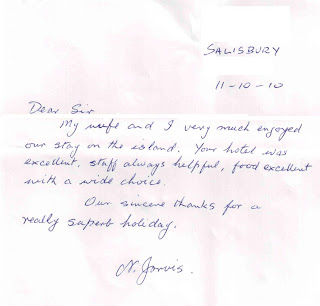 SALISBURY
11-10-10
Dear Sir
My wife and I very much enjoyed
our stay on the island. Your hotel was
excellent, staff always helpful, food excellent
with a wide choice.
Our sincere thanks for a
really superb holiday.
N. Jarvis.